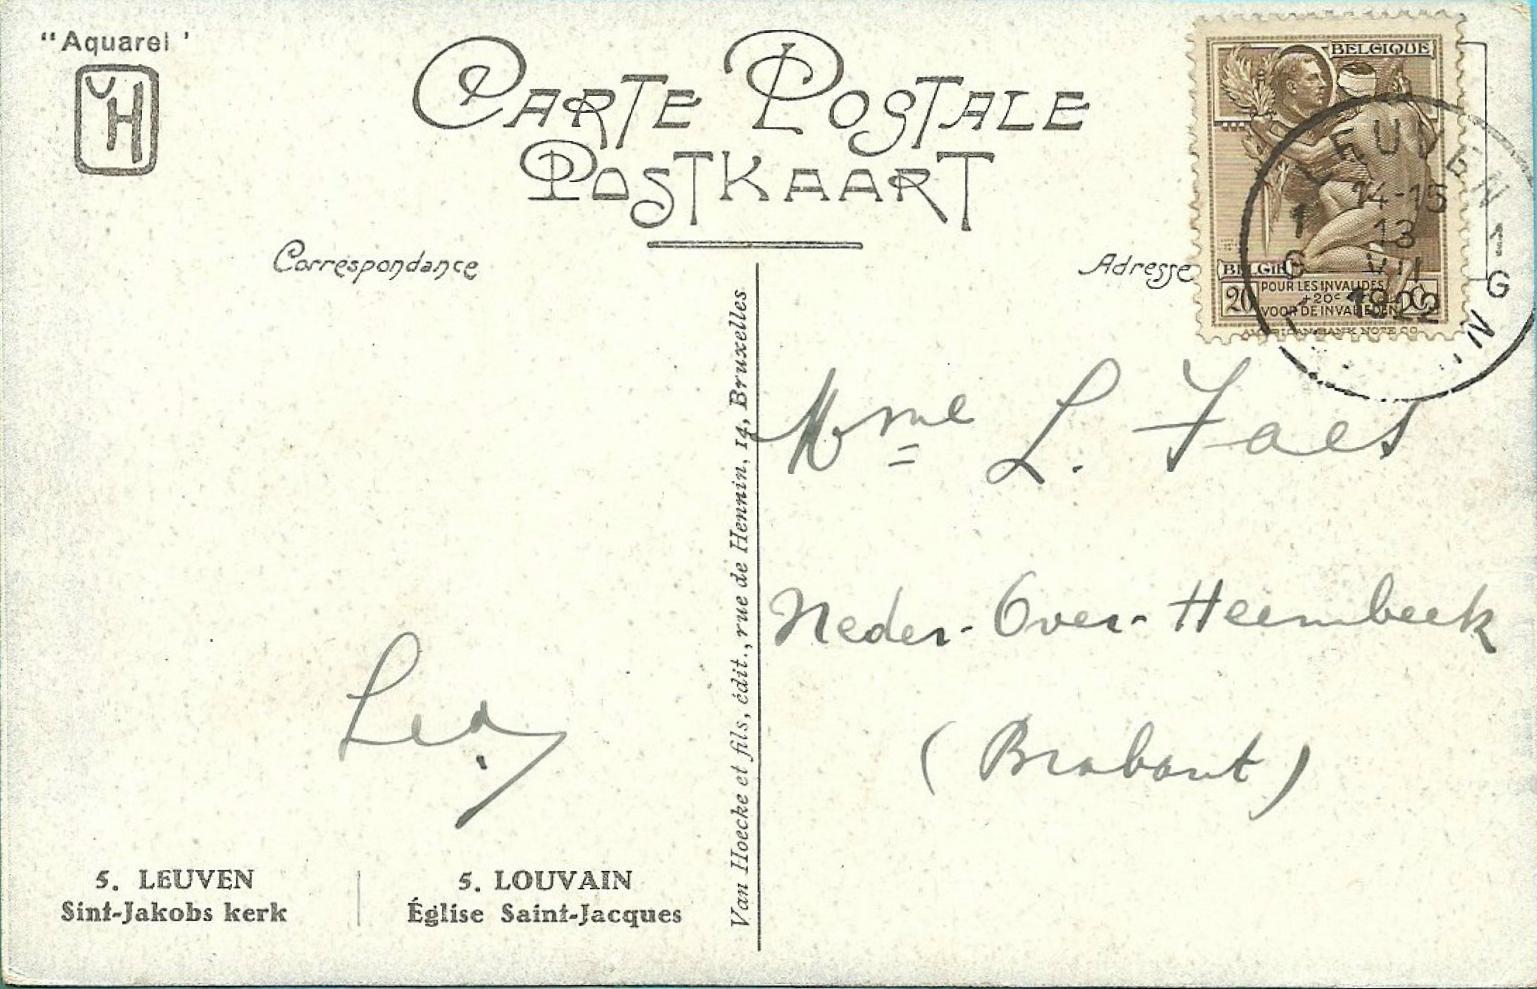 "Aquarel"
VH
CARTE POSTALE
POSTKAART
Correspondance
Adresse
BELGIQUE
BELGIË
20
POUR LES INVALIDES
+20c
VOOR DE INVALIEDEN
AMERICAN BANK NOTE CO
LEUVEN
14-15
13
VII
1922
1 G
1 G
Mme L. Faes
Neder-Over-Heembeek
(Brabant)
Van Hoecke et fils, édit., rue de Hennin, 14, Bruxelles
5. LEUVEN
Sint-Jakobs kerk
5. LOUVAIN
Église Saint-Jacques